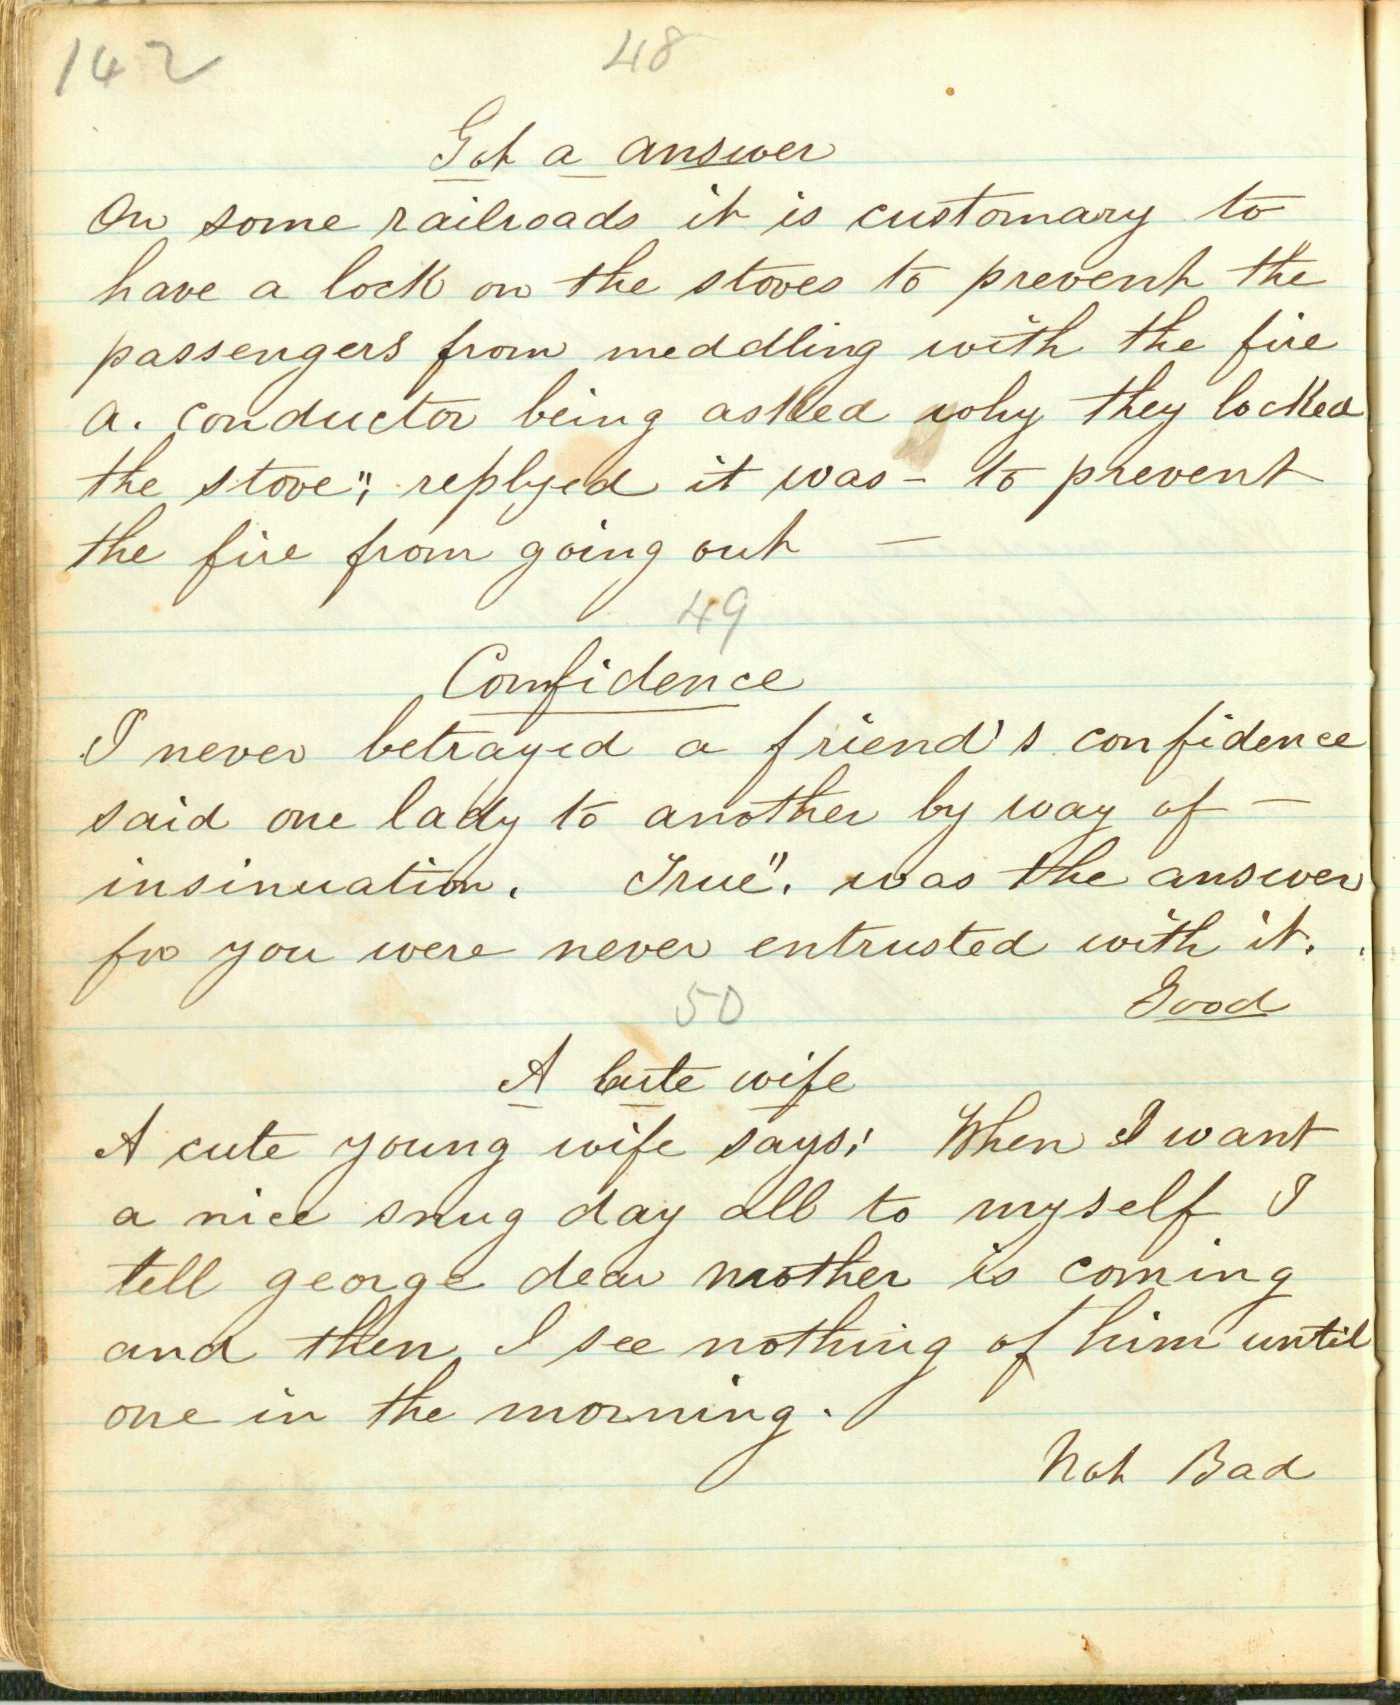 142 48
Got a answer
On some railroads it is customary to
have a lock on the stoves to prevent the
passengers from meddling with the fire
a. conductor being asked why they locked
the stove", replyed it was - to prevent
the fire from going out —
49
Confidence
I never betrayed a friend's confidence
said one lady to another by way of —
insinuation. True". was the answer
for you were never entrusted with it.
Good
50
A cute wife
A cute young wife says: When I want
a nice snug day all to myself I
tell george dear mother is coming
and then I see nothing of him until
one in the morning.
Not Bad